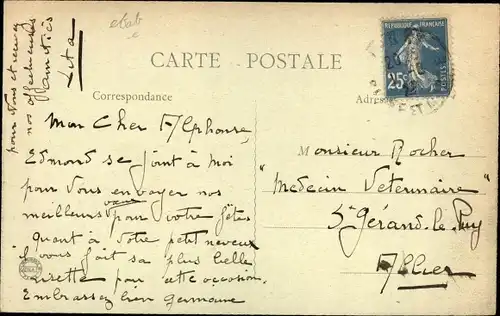 ebab
e
CARTE POSTALE
REPUBLIQUE FRANÇAISE
25c
POSTES
Correspondance
Adres
Mon Cher Alphonse,
Edmond se joint à moi
pour Vous envoyer nos
meilleurs vœux pour votre fêtes
quant à Votre petit neveux
il vous fait sa plus belle
risette pour cette occasion.
Embrassez bien Germaine
pour Vous et recevez
nos affectueuses
amitiés
Lita
Monsieur Rocher
"Medecin Veterinaire"
St Gérand-le-Puy
Allier